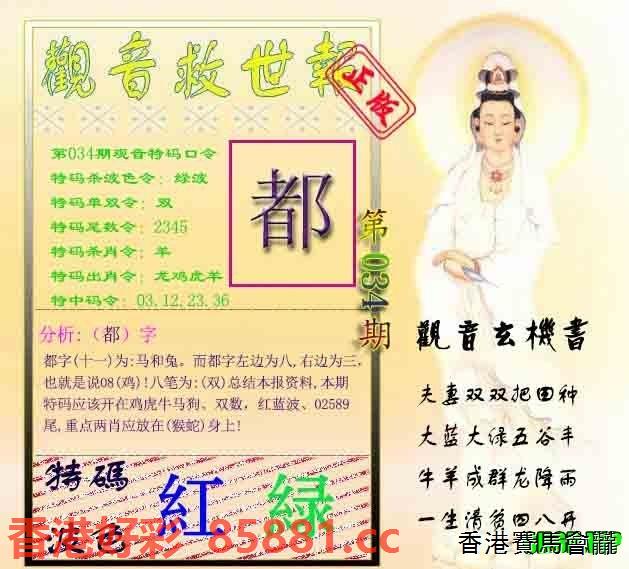 觀音救世報
正版
第034期观音特码口令
特码杀波色令: 绿波
特码单双令: 双
特码尾数令: 2345
特码杀肖令: 羊
特码出肖令: 龙鸡虎羊
特中码令: 03.12.23.36
都
第034期
分析:（都）字
都字(十一)为:马和兔。而都字左边为八,右边为三,
也就是说08(鸡)!八笔为:(双)总结本报资料,本期
特码应该开在鸡虎牛马狗、双数，红蓝波、02589
尾,重点两肖应放在(猴蛇)身上!
特碼
波色
紅 绿
香港好彩 85881.cc
觀音玄機書
夫妻双双把田种
大蓝大绿五谷丰
牛羊成群龙降雨
一生清贫四八开
香港賽馬會